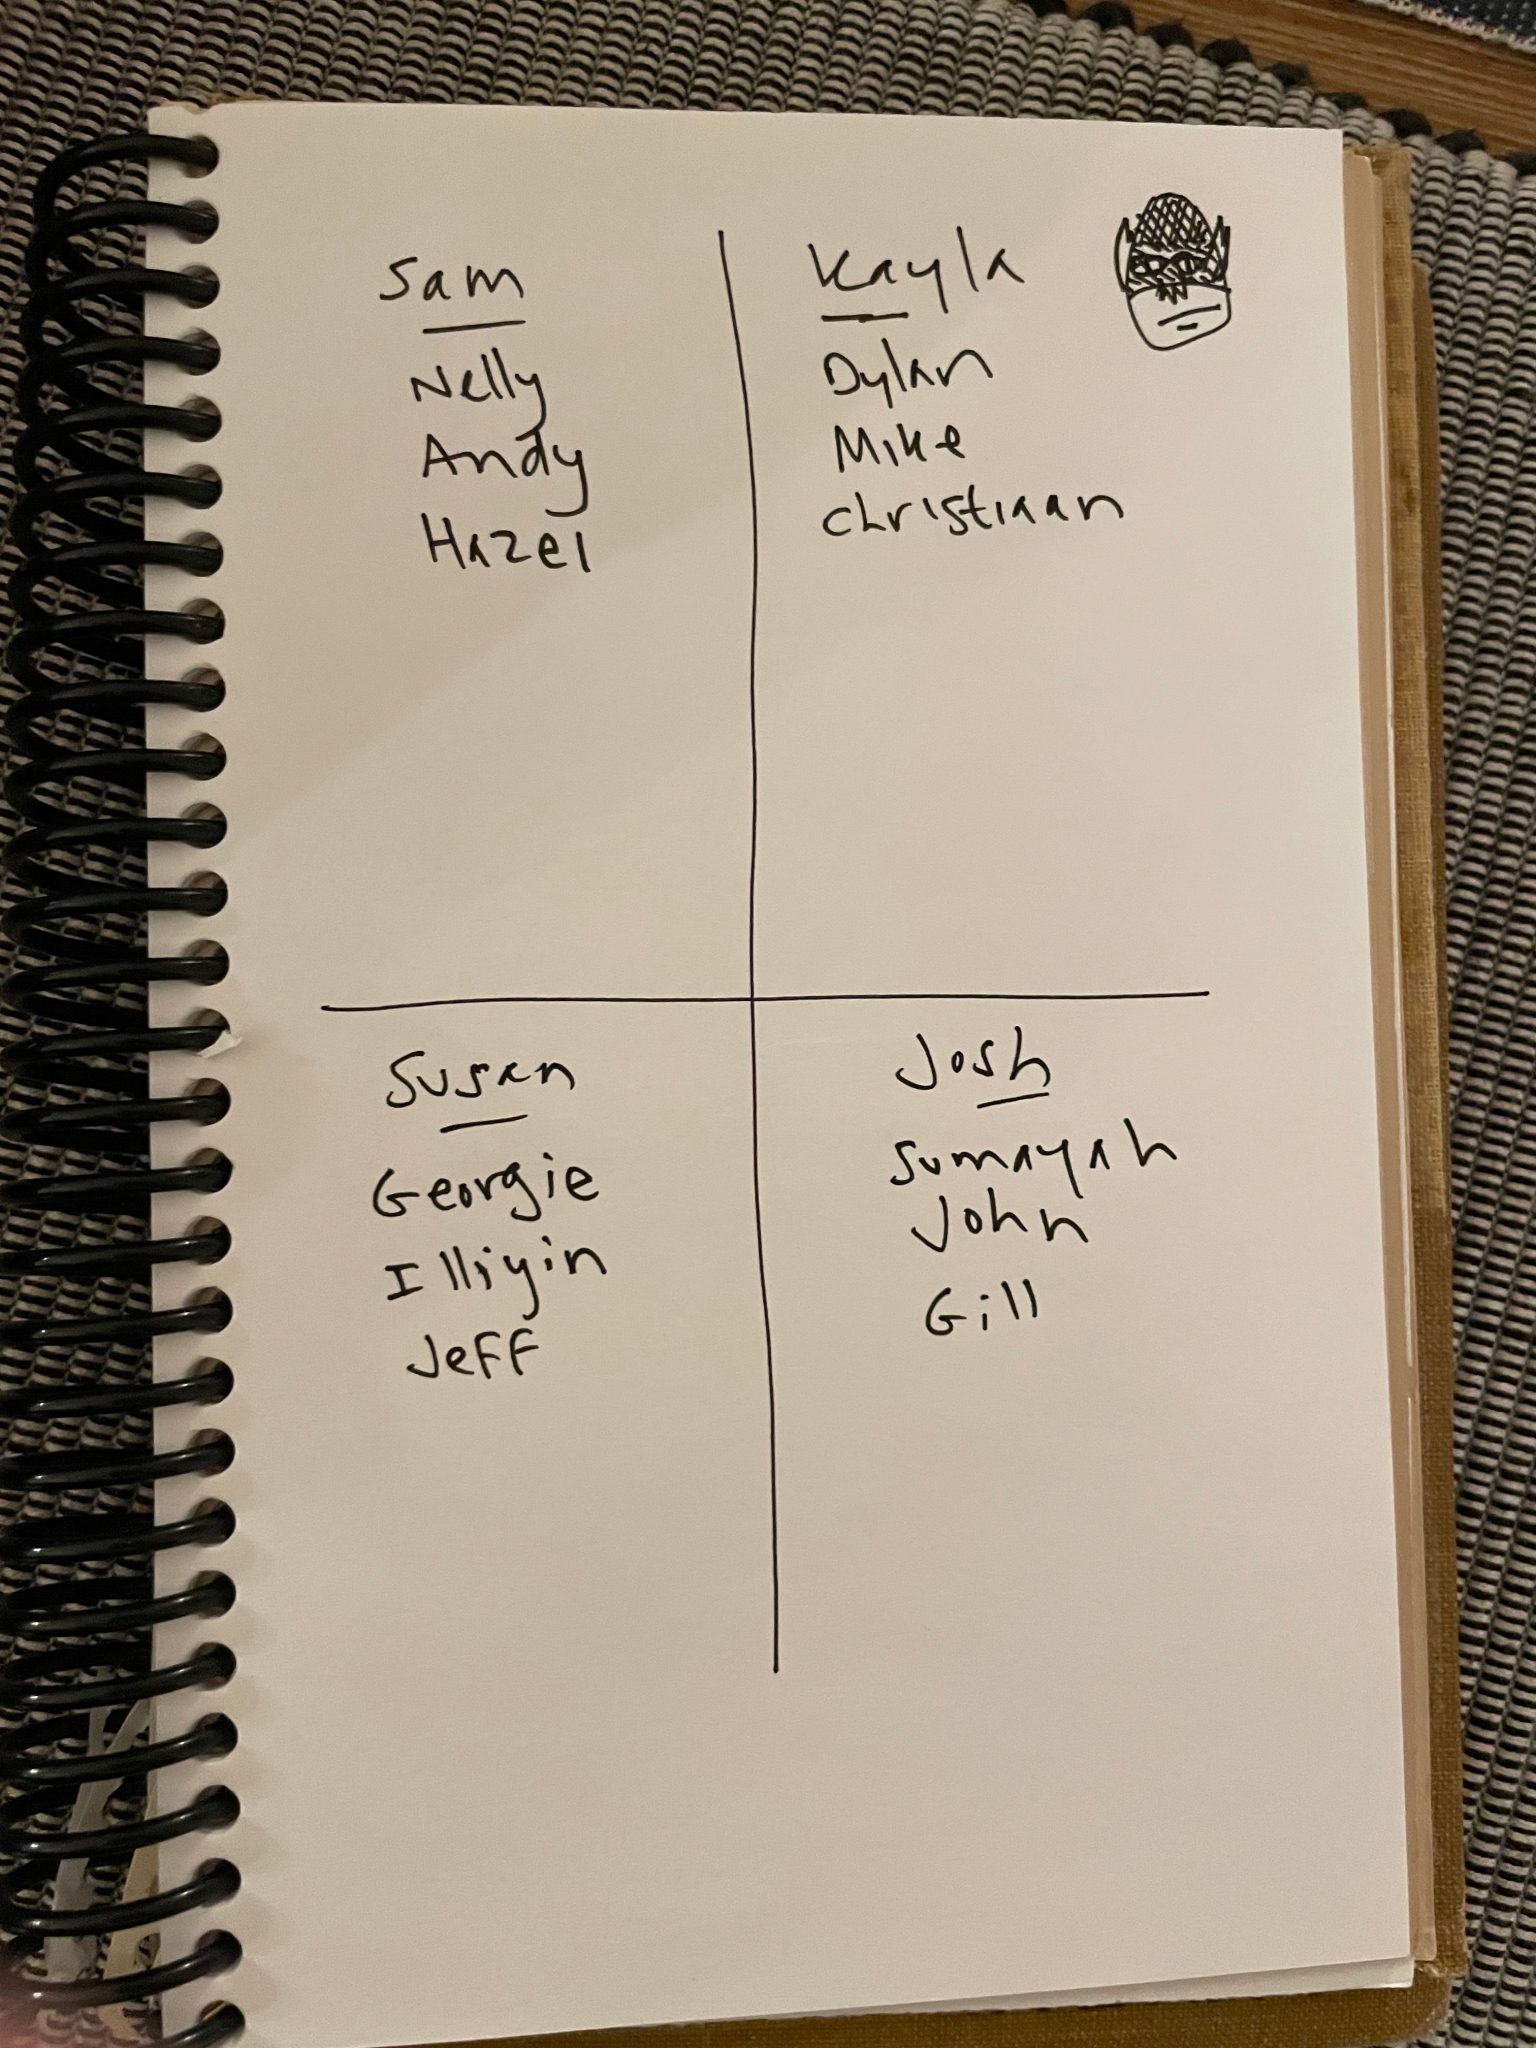 Sam
Nelly
Andy
Hazel
Kayla
Dylan
Mike
Christiaan
Susan
Georgie
Illiyin
Jeff
Josh
Sumayah
John
Gill